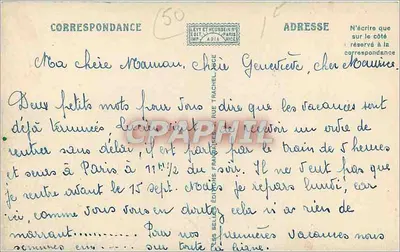 50
CORRESPONDANCE
LÉVY ET NEURDEIN RÉUNIS
PARIS
ADRESSE
N'écrire que
sur le côté
réservé à la
correspondance
Ma chère Maman, chère Geneviève, cher Maurice,
Deux petits mots pour vous dire que les vacances sont
déjà terminées, vient de recevoir un ordre de
rentrer sans délai, il est parti par le train de 5 heures
et sera à Paris à 11H1/2 du soir. Il ne veut pas que
je rentre avant le 15 sept. Mais je repars lundi, car
ici, comme vous vous en doutez cela n'a rien de
marrant........... Pour nos premières vacances nous
sommes sur toute la ligne.
CPHPHIL
RUE TRACHEL, NICE